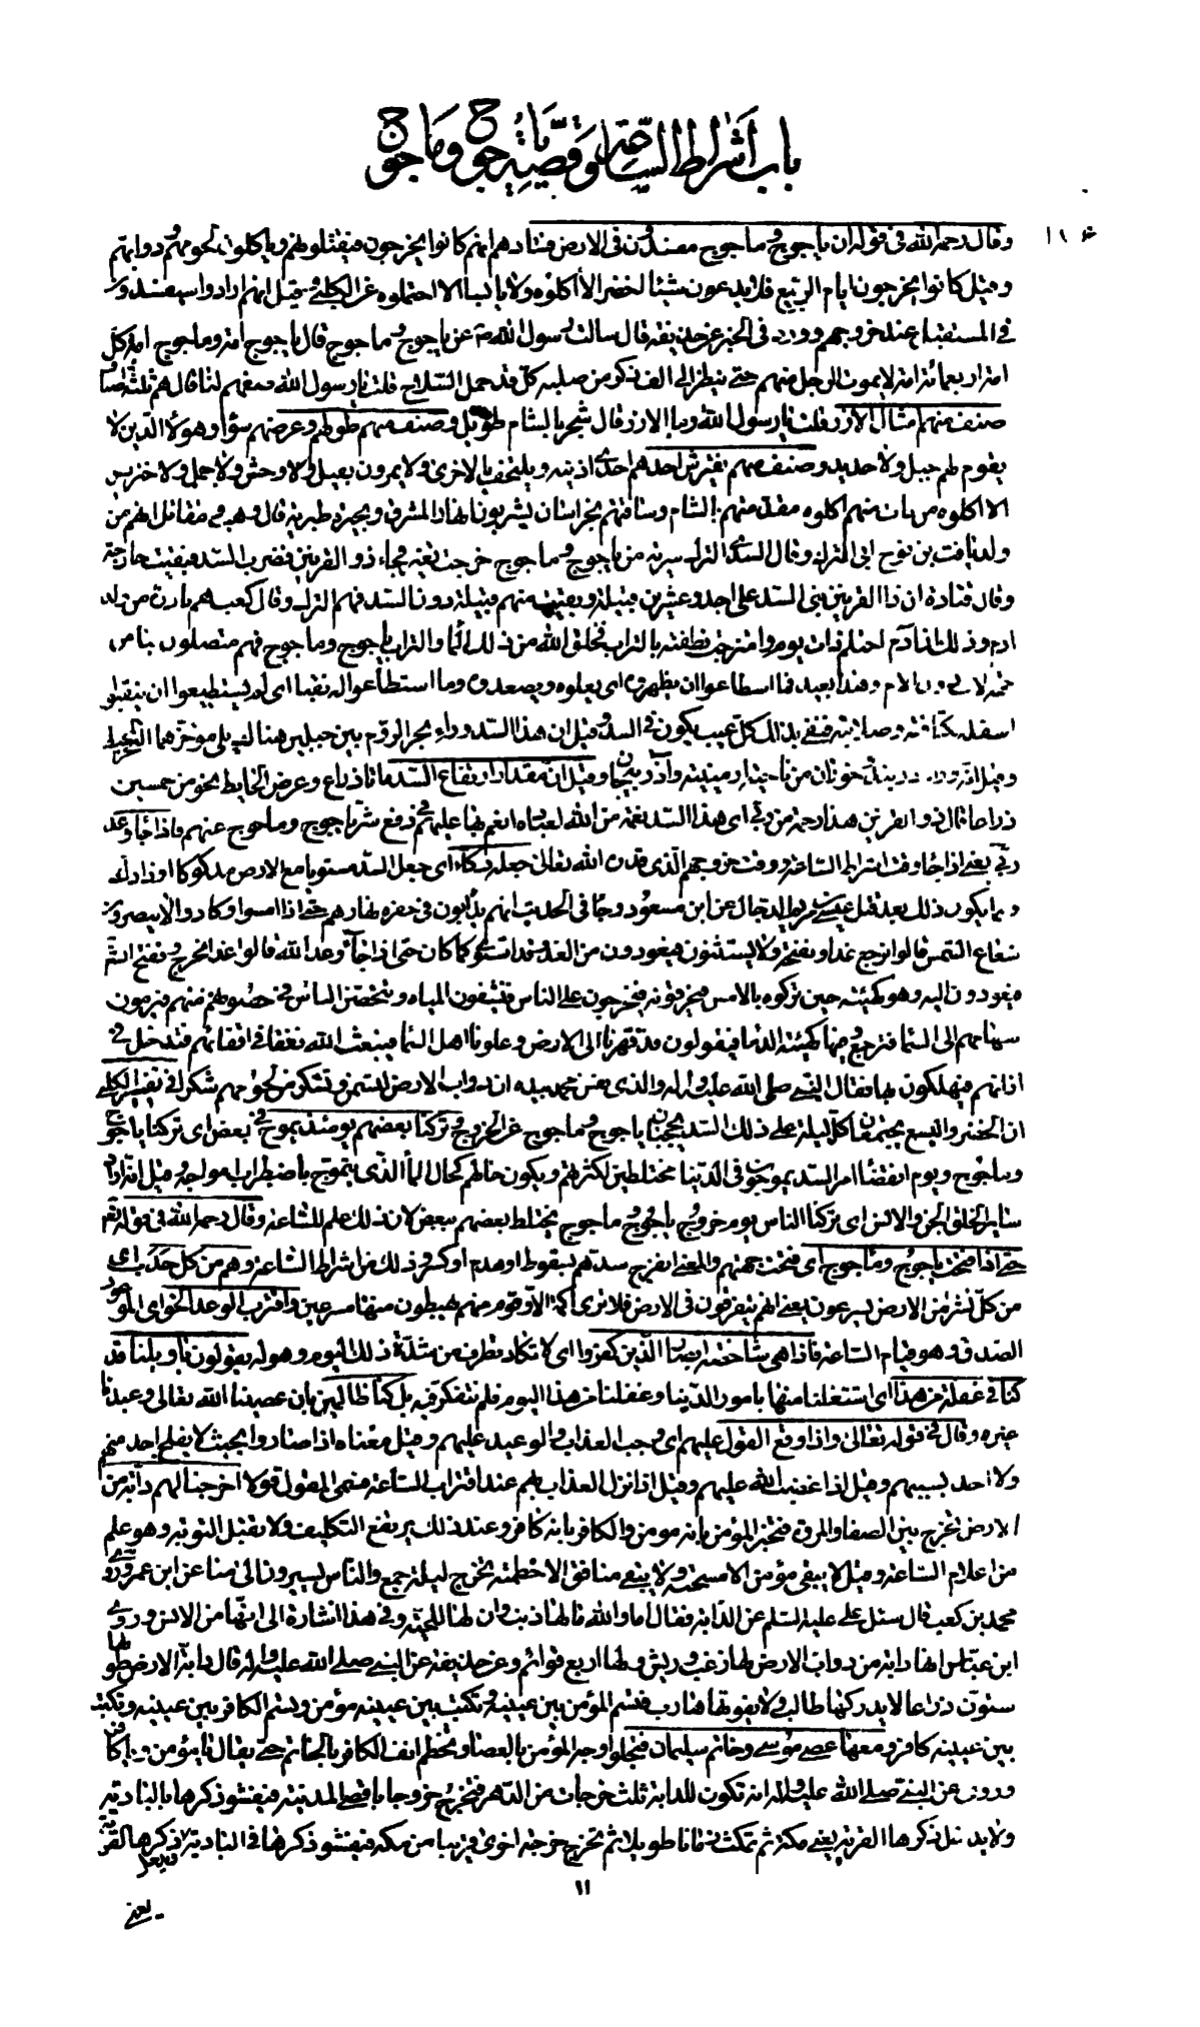 باب أشراط الساعة وقصة ياجوج وماجوج
وقال رحمه الله في قوله ان ياجوج وماجوج مفسدون في الارض فسادهم انهم كانوا يخرجون فيقتلونهم وياكلون لحومهم ودوابهم
وقيل كانوا يخرجون ايام الربيع فلا يدعون شيئا اخضر الا أكلوه ولا يابسا الا احتملوه عن الكلبي وقيل انهم ارادوا سيفسدون
في المستقبل عند خروجهم وورد في الخبر عن حذيفه قال سالت رسول الله ص عن ياجوج وماجوج قال ياجوج امة وماجوج امة كل
امة اربعمائة امة لا يموت الرجل منهم حتى ينظر الى الف ذكر من صلبه كل قد حمل السلاح قلت يا رسول الله صفهم لنا قال هم ثلثة اصناف
صنف منهم امثال الارز قلت يا رسول الله وما الارز قال شجر بالشام طويل وصنف منهم طولهم وعرضهم سواء وهولاء الذين لا
يقوم لهم جبل ولا حديد وصنف منهم يفترش احدهم احدى اذنيه ويلتحف بالاخرى ولا يمرون بفيل ولا وحش ولا جمل ولا خنزير
الا اكلوه من مات منهم اكلوه مقدمتهم بالشام وساقتهم بخراسان يشربون انهار المشرق وبحيرة طبرية قال وهب ومقاتل انهم من
ولد يافث بن نوح ابي الترك وقال السدي الترك سرية من ياجوج وماجوج خرجت تغير فجاء ذو القرنين فضرب السد فبقيت خارجه
وقال قتادة ان ذا القرنين بنى السد على احد وعشرين قبيلة وبقيت منهم قبيلة دون السد فهم الترك وقال كعب هم نادرة من ولد
ادم وذلك ان آدم احتلم ذات يوم وامتزجت نطفته بالتراب فخلق الله من ذلك الماء والتراب ياجوج وماجوج فهم متصلون بنا من
جهة الاب دون الام وهذا بعيد فما اسطاعوا ان يظهروه اى يعلوه ويصعدوه وما استطاعوا له نقبا اى لم يستطيعوا ان ينقبوا
اسفله لكثافته وصلابته فنفى بذلك كل عيب يكون في السد وقيل ان هذا السد وراء بحر الروم بين جبلين هناك يلي مؤخرهما البحر المحيط
وقيل انه وراء دربند وخزران من ناحية ارمينية وآذربيجان وقيل ان مقدار ارتفاع السد مائتا ذراع وعرض الحايط نحو من خمسين
ذراعا قال ذو القرنين هذا رحمة من ربي اى هذا السد نعمة من الله لعباده انعم بها عليهم في دفع شر ياجوج وماجوج عنهم فاذا جاء وعد
ربي يعني اذا جاء وقت اشراط الساعة ووقت خروجهم الذى قدره الله تعالى جعله دكاء اى جعل السد مستويا مع الارض مدكوكا او ذا دك
وانما يكون ذلك بعد قتل عيسى بن مريم الدجال عن ابن مسعود وجاء في الحديث انهم يدأبون في حفره نهارهم حتى اذا امسوا وكادوا لا يبصرون
شعاع الشمس قالوا نرجع غدا ونفتحه ولا يستثنون فيعودون من الغد وقد استوى كما كان حتى اذا جاء وعد الله قالوا غدا نخرج ونفتح انشاء الله
فيعودون اليه وهو كهيئته حين تركوه بالامس فيخرقونه فيخرجون على الناس فينشفون المياه ويتحصن الناس في حصونهم منهم فيرمون
سهامهم الى السماء فترجع وفيها كهيئة الدماء فيقولون قد قهرنا اهل الارض وعلونا اهل السماء فيبعث الله نغفا في اقفائهم فتدخل في
اذانهم فيهلكون بها فقال النبي صلى الله عليه وآله والذى نفس محمد بيده ان دواب الارض لتسمن وتشكر من لحومهم شكرا وفي تفسير الكلبي
ان الخضر واليسع يجتمعان كل ليلة على ذلك السد يحجبان ياجوج وماجوج عن الخروج وتركنا بعضهم يومئذ يموج في بعض اى تركنا ياجوج
وماجوج ويوم انقضاء امر السد يموجون في الدنيا مختلطين لكثرتهم ويكون حالهم كحال الماء الذى يتموج باضطراب امواجه وقيل انه اراد
سائر الخلق الجن والانس اى تركنا الناس يوم خروج ياجوج وماجوج يختلط بعضهم ببعض لان ذلك علم للساعة وقال رحمه الله في قوله تعالى
حتى اذا فتحت ياجوج وماجوج اى فتحت جهتهم والمعنى انفرج سدهم بسقوط او هدم او كسر وذلك من اشراط الساعة وهم من كل حدب اى
من كل نشز من الارض يسرعون يعني انهم يتفرقون في الارض فلا ترى اكمة الا وقوم منهم يهبطون منها مسرعين واقترب الوعد الحق اى الموعود
الصدق وهو قيام الساعة فاذا هي شاخصة ابصار الذين كفروا اى لا تكاد تطرف من شدة ذلك اليوم وهوله يقولون يا ويلنا قد
كنا في غفلة من هذا اى اشتغلنا منها بامور الدنيا وغفلنا من هذا اليوم فلم نتفكر فيه بل كنا ظالمين بان عصينا الله تعالى وعبدنا
غيره وقال في قوله تعالى واذا وقع القول عليهم اى وجب العذاب والوعيد عليهم وقيل معناه اذا صاروا بحيث لا يفلح احد منهم
ولا احد بسببهم وقيل اذا غضب الله عليهم وقيل اذا نزل العذاب بهم عند اقتراب الساعة فسمى المقول قولا اخرجنا لهم دابة من
الارض تخرج بين الصفا والمروة فتخبر المؤمن بانه مومن والكافر بانه كافر وعند ذلك يرتفع التكليف ولا تقبل التوبة وهو علم
من اعلام الساعة وقيل لا يبقى مؤمن الا مسحته ولا يبقى منافق الا خطمته تخرج ليلة جمع والناس يسيرون الى منا عن ابن عمر وروى
محمد بن كعب قال سئل علي عليه السلم عن الدابة فقال اما والله ما لها ذنب وان لها للحية وفي هذا اشارة الى انها من الانس وروى
ابن عباس انها دابة من دواب الارض لها زغب وريش ولها اربع قوائم وعن حذيفة عن النبي صلى الله عليه وآله قال دابة الارض طولها
ستون ذراعا لا يدركها طالب ولا يفوتها هارب فتسم المؤمن بين عينيه وتكتب بين عينيه مؤمن وتسم الكافر بين عينيه وتكتب
بين عينيه كافر ومعها عصى موسى وخاتم سليمان فتجلو وجه المؤمن بالعصا وتخطم انف الكافر بالخاتم حتى يقال يا مؤمن ويا كافر
وروى عن النبي صلى الله عليه وآله انه تكون للدابة ثلث خرجات من الدهر فتخرج خروجا باقصى المدينة فيفشو ذكرها بالبادية
ولا يدخل ذكرها القرية يعني مكة ثم تمكث زمانا طويلا ثم تخرج خرجة اخرى قريبا من مكة فيفشو ذكرها في البادية ويدخل ذكرها القرية
١١
يعني